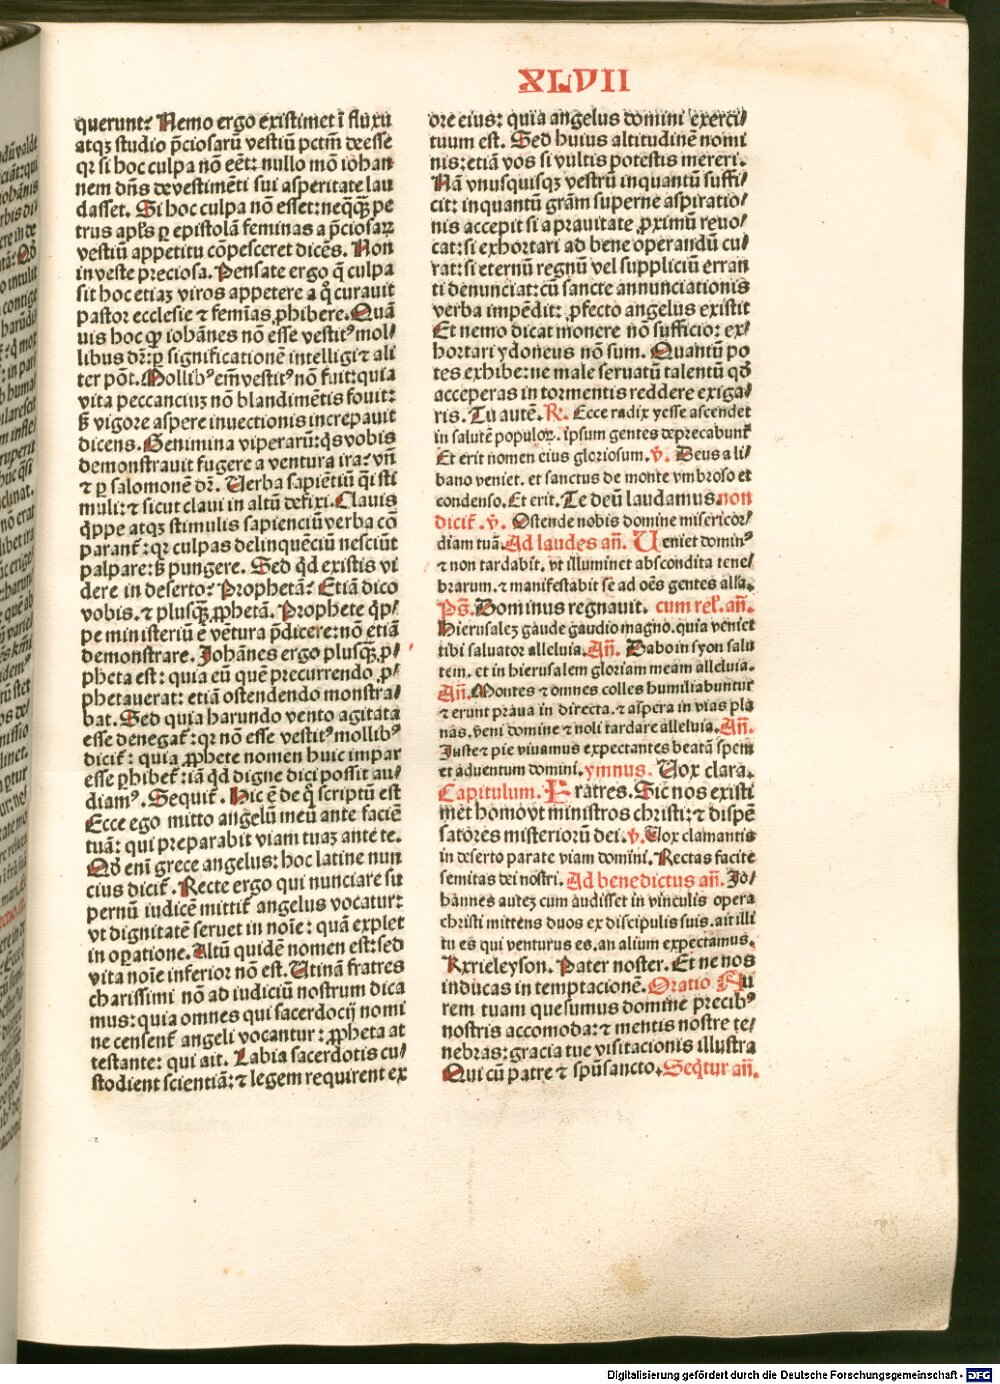 XLVII
querunt? Nemo ergo existimet ī fluxu
atqʒ studio p̄ciosarū vestiū pctm̄ deesse
qr si hoc culpa nō eēt: nullo mō iohan
nem dn̄s de vestimēti sui asperitate lau
dasset. Si hoc culpa nō esset: neqq̄ʒ pe
trus apl̄s ꝑ epistolā feminas a p̄ciosaꝝ
vestiū appetitu cōpesceret dicēs. Non
in veste preciosa. Pensate ergo q̄ culpa
sit hoc etiaʒ viros appetere a q̊ curauit
pastor ecclesie ⁊ femīas ꝓhibere. Quā
uis hoc ꝙ iohānes nō esse vestitꝰ mol/
libus dr̄: ꝑ significationē intelligi ⁊ ali
ter pōt. Mollibꝰ em̄ vestitꝰ nō fuit: quia
vita peccanciuʒ nō blandimētis fouit:
ß vigore aspere inuectionis increpauit
dicens. Genimina viperarū: q̄s vobis
demonstrauit fugere a ventura ira? vn̄
⁊ ꝑ salomonē dr̄. Uerba sapiētiū q̄si sti
muli: ⁊ sicut claui in altū defixi. Clauis
q̄ppe atqʒ stimulis sapienciū verba cō
parant̄: qr culpas delinquēciū nesciūt
palpare: ß pungere. Sed q̇d existis vi
dere in deserto? Prophetā? Etiā dico
vobis. ⁊ plusq̄ʒ ꝓphetā. Prophete q̇p/
pe ministeriū ē vētura p̄dicere: nō etiā
demonstrare. Johānes ergo plusq̄ʒ ꝓ
pheta est: quia eū quē precurrendo ꝓ/
phetauerat: etiā ostendendo monstra/
bat. Sed quia harundo vento agitata
esse denegat̄: qr nō esse vestitꝰ mollibꝰ
dicit̄: quia ꝓphete nomen huic impar
esse ꝓhibet̄: iā q̇d digne dici possit au/
diamꝰ. Sequit̄. Hic ē de q̊ scriptū est
Ecce ego mitto angelū meū ante faciē
tuā: qui preparabit viam tuaʒ ante te.
Qd̓ enī grece angelus: hoc latine nun
cius dicit̄. Recte ergo qui nunciare su
pernū iudicē mittit̄ angelus vocatur:
vt dignitatē seruet in noīe: quā explet
in oꝑatione. Altū quidē nomen est: sed
vita noīe inferior nō est. Utinā fratres
charissimi nō ad iudiciū nostrum dica
mus: quia omnes qui sacerdocij nomi
ne censent̄ angeli vocantur: ꝓpheta at
testante: qui ait. Labia sacerdotis cu/
stodient scientiā: ⁊ legem requirent ex
ore eius: quia angelus domini exerci/
tuum est. Sed huius altitudinē nomi
nis: etiā vos si vultis potestis mereri.
Nā vnusquisqʒ vestrū inquantū suffi/
cit: inquantū grām superne aspiratio/
nis accepit si a prauitate ꝓximū reuo/
cat: si exhortari ad bene operandū cu/
rat: si eternū regnū vel suppliciū erran
ti denunciat: cū sancte annunciationis
verba impēdit: ꝓfecto angelus existit
Et nemo dicat monere nō sufficio: ex/
hortari ydoneus nō sum. Quantū po
tes exhibe: ne male seruatū talentū qd̓
acceperas in tormentis reddere exiga/
ris. Tu autē. R. Ecce radix yesse ascendet
in salutē populoꝝ. ipsum gentes deprecabunt̄
Et erit nomen eius gloriosum. v̄. Deus a li/
bano veniet. et sanctus de monte vmbroso et
condenso. Et erit. Te deū laudamus. non
dicit̄. v̄. Ostende nobis domine misericor/
diam tuā. Ad laudes an̄. Ueniet dominꝰ
⁊ non tardabit. vt illuminet abscondita tene/
brarum. ⁊ manifestabit se ad oēs gentes alla.
Ps̄. Dominus regnauit. cum rel̓. an̄.
Hierusaleʒ gaude gaudio magno. quia veniet
tibi saluator alleluia. An̄. Dabo in syon salu
tem. et in hierusalem gloriam meam alleluia.
An̄. Montes ⁊ omnes colles humiliabuntur
⁊ erunt praua in directa. ⁊ aspera in vias pla
nas. veni domine ⁊ noli tardare alleluia. An̄.
Juste ⁊ pie viuamus expectantes beatā spem
et aduentum domini. ymnus. Uox clara.
Capitulum. Fratres. Sic nos existi
met homo vt ministros christi: ⁊ dispē
satores misteriorū dei. v̄. Uox clamantis
in deserto parate viam domini. Rectas facite
semitas dei nostri. Ad benedictus an̄. Jo/
hannes auteʒ cum audisset in vinculis opera
christi mittens duos ex discipulis suis. ait illi
tu es qui venturus es. an alium expectamus.
Kyrieleyson. Pater noster. Et ne nos
inducas in temptacionē. Oratio Au
rem tuam quesumus domine precibꝰ
nostris accomoda: ⁊ mentis nostre te/
nebras: gracia tue visitacionis illustra
Qui cū patre ⁊ spū sancto. Seq̄tur an̄.
Digitalisierung gefördert durch die Deutsche Forschungsgemeinschaft - DFG